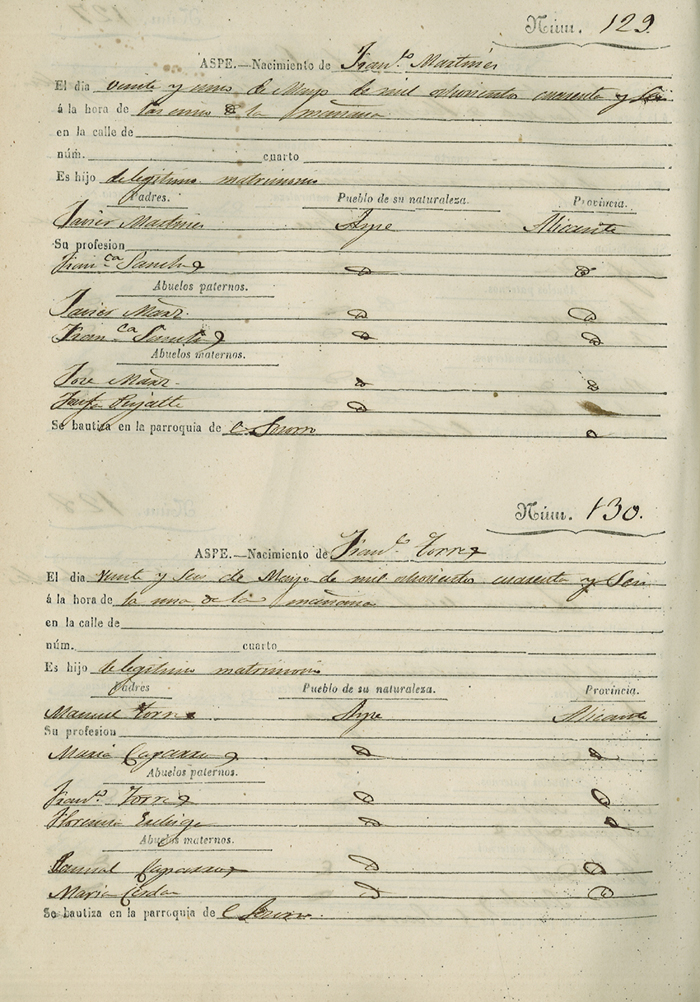 Núm. 129.
ASPE.—Nacimiento de Fran.co Martines
El dia veinte y uno de Mayo de mil ochocientos cuarenta y Seis
á la hora de las once de la mañana
en la calle de
núm. cuarto
Es hijo de legitimo matrimonio
Padres. Pueblo de su naturaleza. Provincia.
Javier Martines Aspe Alicante
Su profesion
Fran.ca Sanchez
Abuelos paternos.
Javier
Fran.ca
Abuelos maternos.
Jose
Josefa Pujalte
Se bautiza en la parroquia de el Socorro
Núm. 130.
ASPE.—Nacimiento de Fran.co Torres
El dia veinte y Seis de Mayo de mil ochocientos cuarenta y Seis
á la hora de la una de la mañana
en la calle de
núm. cuarto
Es hijo de legitimo matrimonio
Padres Pueblo de su naturaleza. Provincia.
Manuel Torres Aspe Alicante
Su profesion
Maria
Abuelos paternos.
Fran.co Torres
Florencia
Abuelos maternos.
Maria Cerdan
Se bautiza en la parroquia de el Socorro